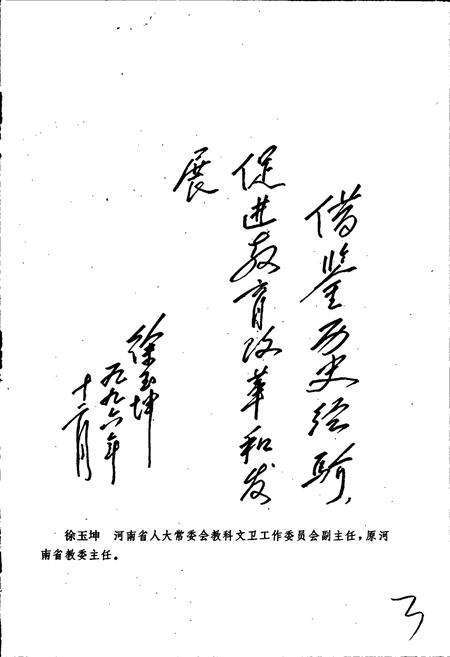 借鉴历史经验，
促进教育改革和发
展
徐玉坤
一九九六年
十二月
徐玉坤　河南省人大常委会教科文卫工作委员会副主任，原河
南省教委主任。
3